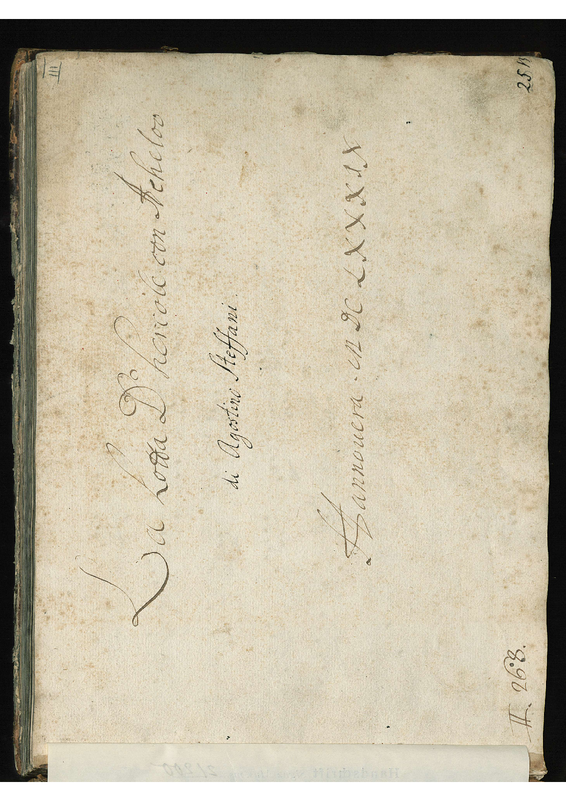 III
La Lotta D'hercole con Acheloo
di Agostino Steffani.
Hannouera. MDCLXXXIX
H. 268.